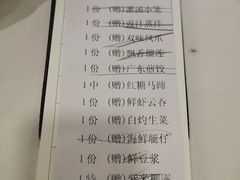 1份 (赠)灌汤小笼
1份 (赠)豉汁蒸排
1份 (赠)双味凤爪
1份 (赠)飘香榴莲
1份 (赠)广东煎饺
1中 (赠)红糖马蹄
1份 (赠)鲜虾云吞
1份 (赠)白灼生菜
1份 (赠)海鲜艇仔
1份 (赠)鲜豆浆
1特 (赠)